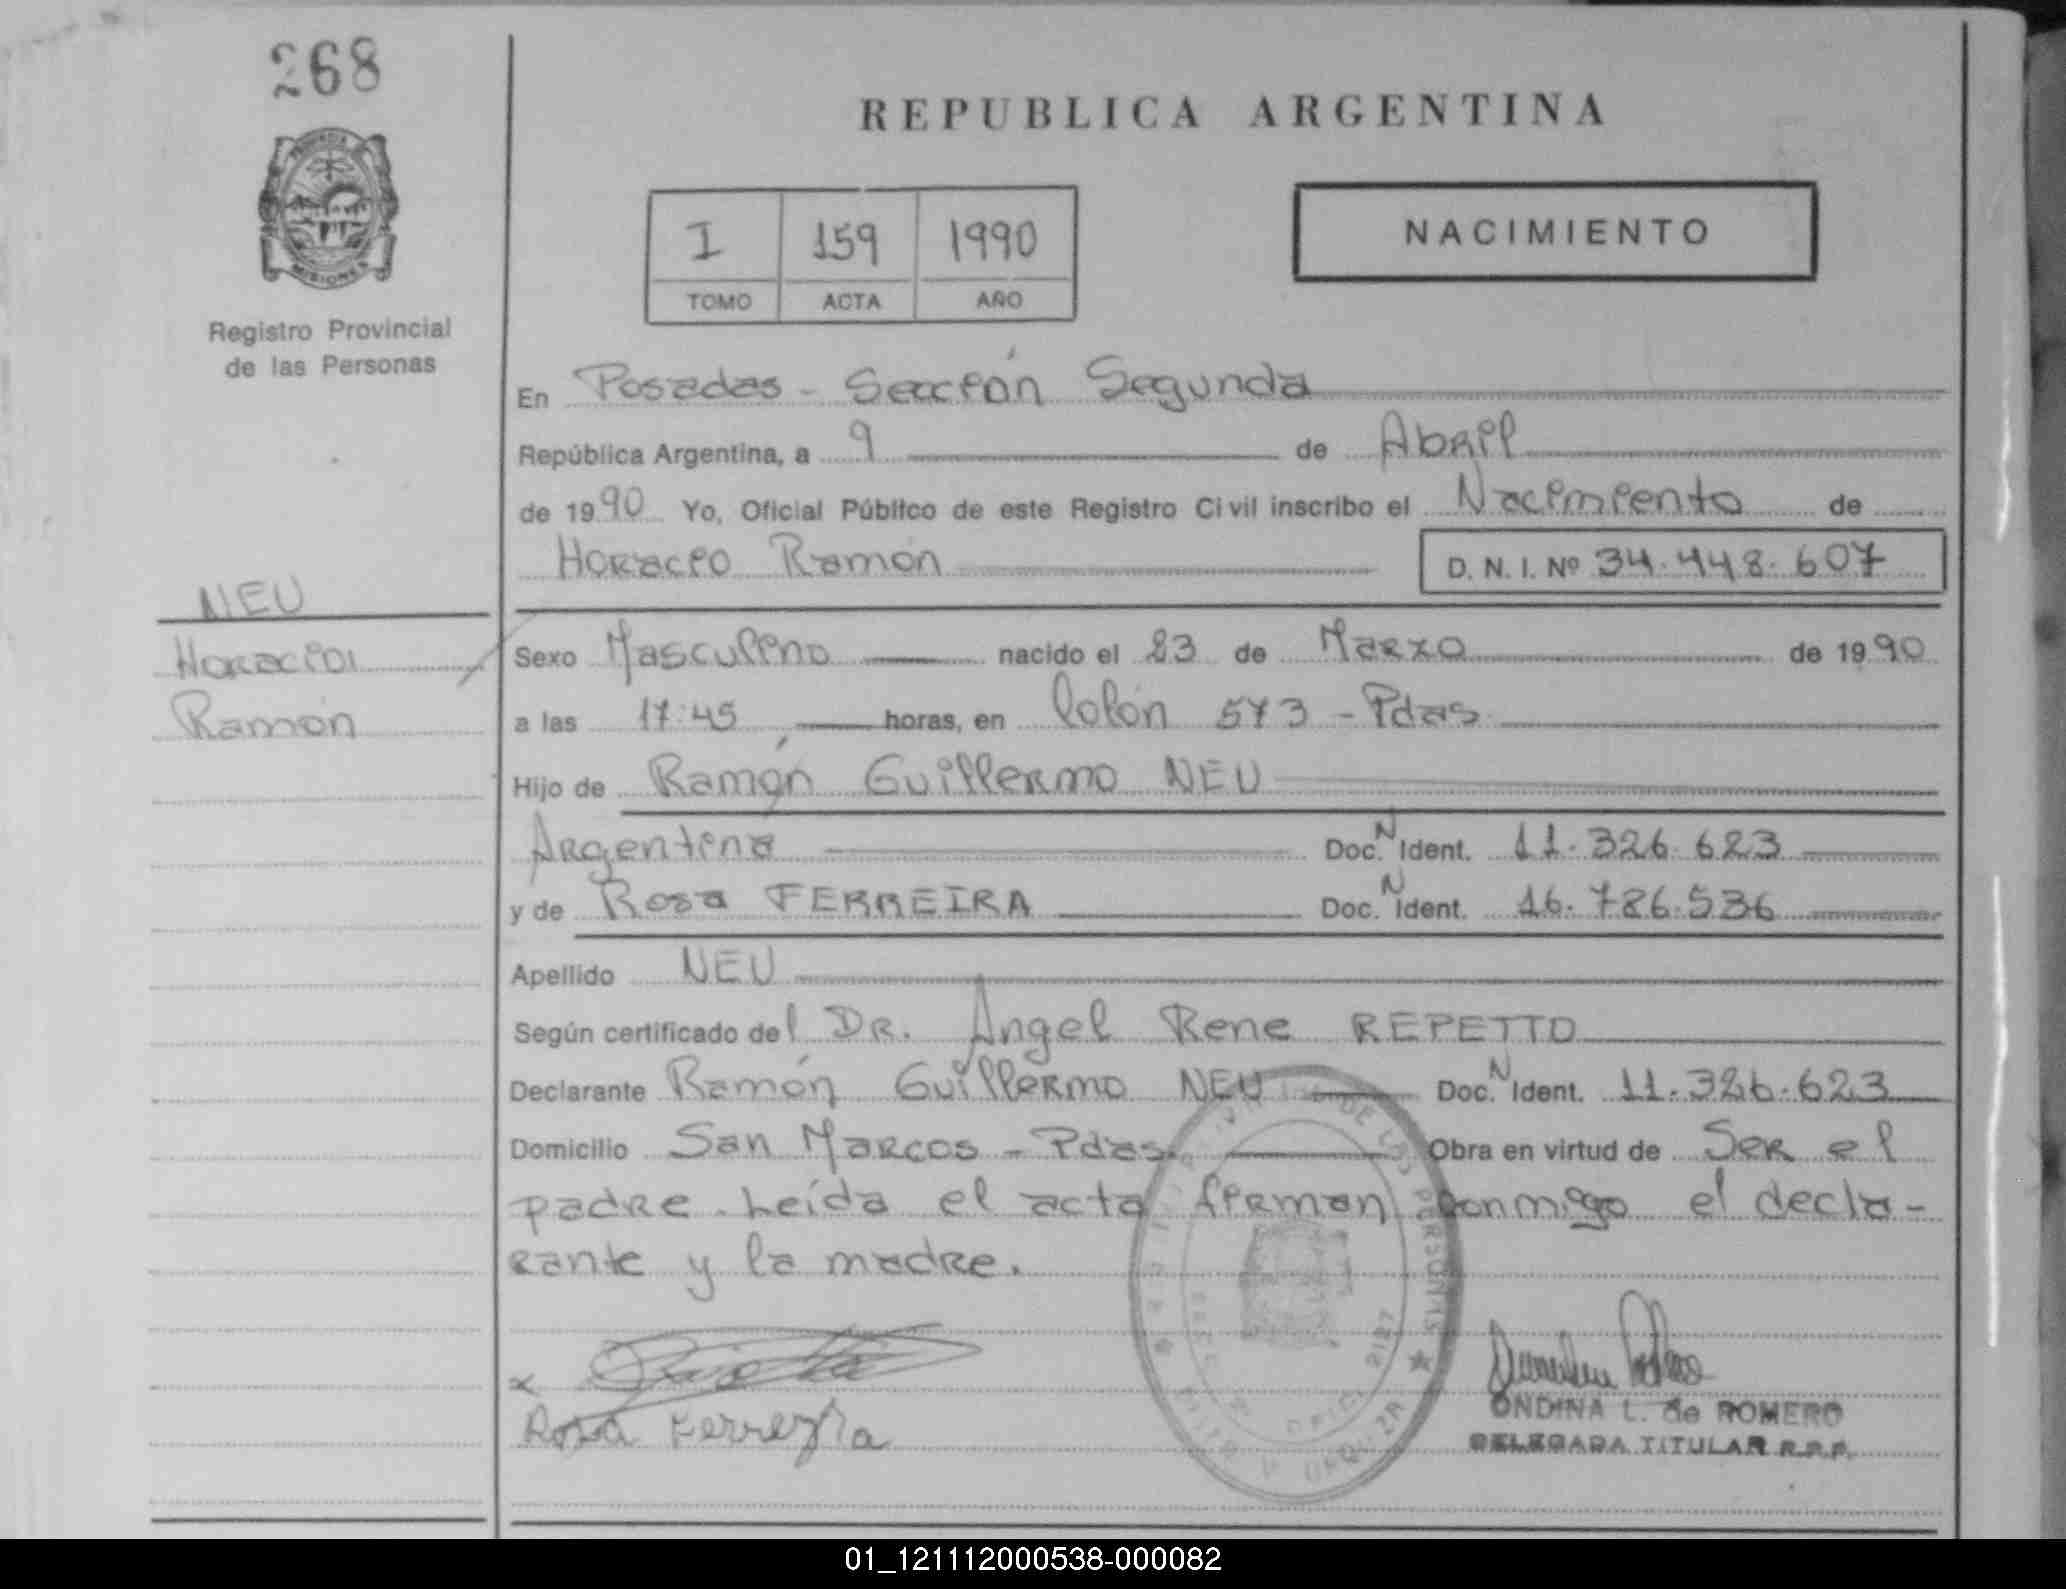 268
PROVINCIA
MISIONES
Registro Provincial
de las Personas
REPUBLICA ARGENTINA
I 159 1990
TOMO ACTA AÑO
NACIMIENTO
En Posadas - Sección Segunda
República Argentina, a 9 de Abril
de 1990 Yo, Oficial Público de este Registro Civil inscribo el Nacimiento de
Horacio Ramón D. N. I. Nº 34.448.607
NEU
Horacio
Ramón
Sexo Masculino nacido el 23 de Marzo de 1990
a las 17:45 horas, en Colón 573 - Pdas
Hijo de Ramón Guillermo NEU
Argentino Doc. N Ident. 11.326.623
y de Rosa FERREIRA Doc. N Ident. 16.786.536
Apellido NEU
Según certificado del DR. Angel Rene REPETTO
Declarante Ramón Guillermo NEU Doc. N Ident. 11.326.623
Domicilio San Marcos - Pdas. Obra en virtud de Ser el
padre. Leída el acta firman conmigo el decla-
rante y la madre.
x
Rosa Ferreyra
ONDINA L. de ROMERO
DELEGADA TITULAR R.P.P.
DE LAS PERSONAS
OFIC. 2127
MITRE Y URQUIZA
01_121112000538-000082